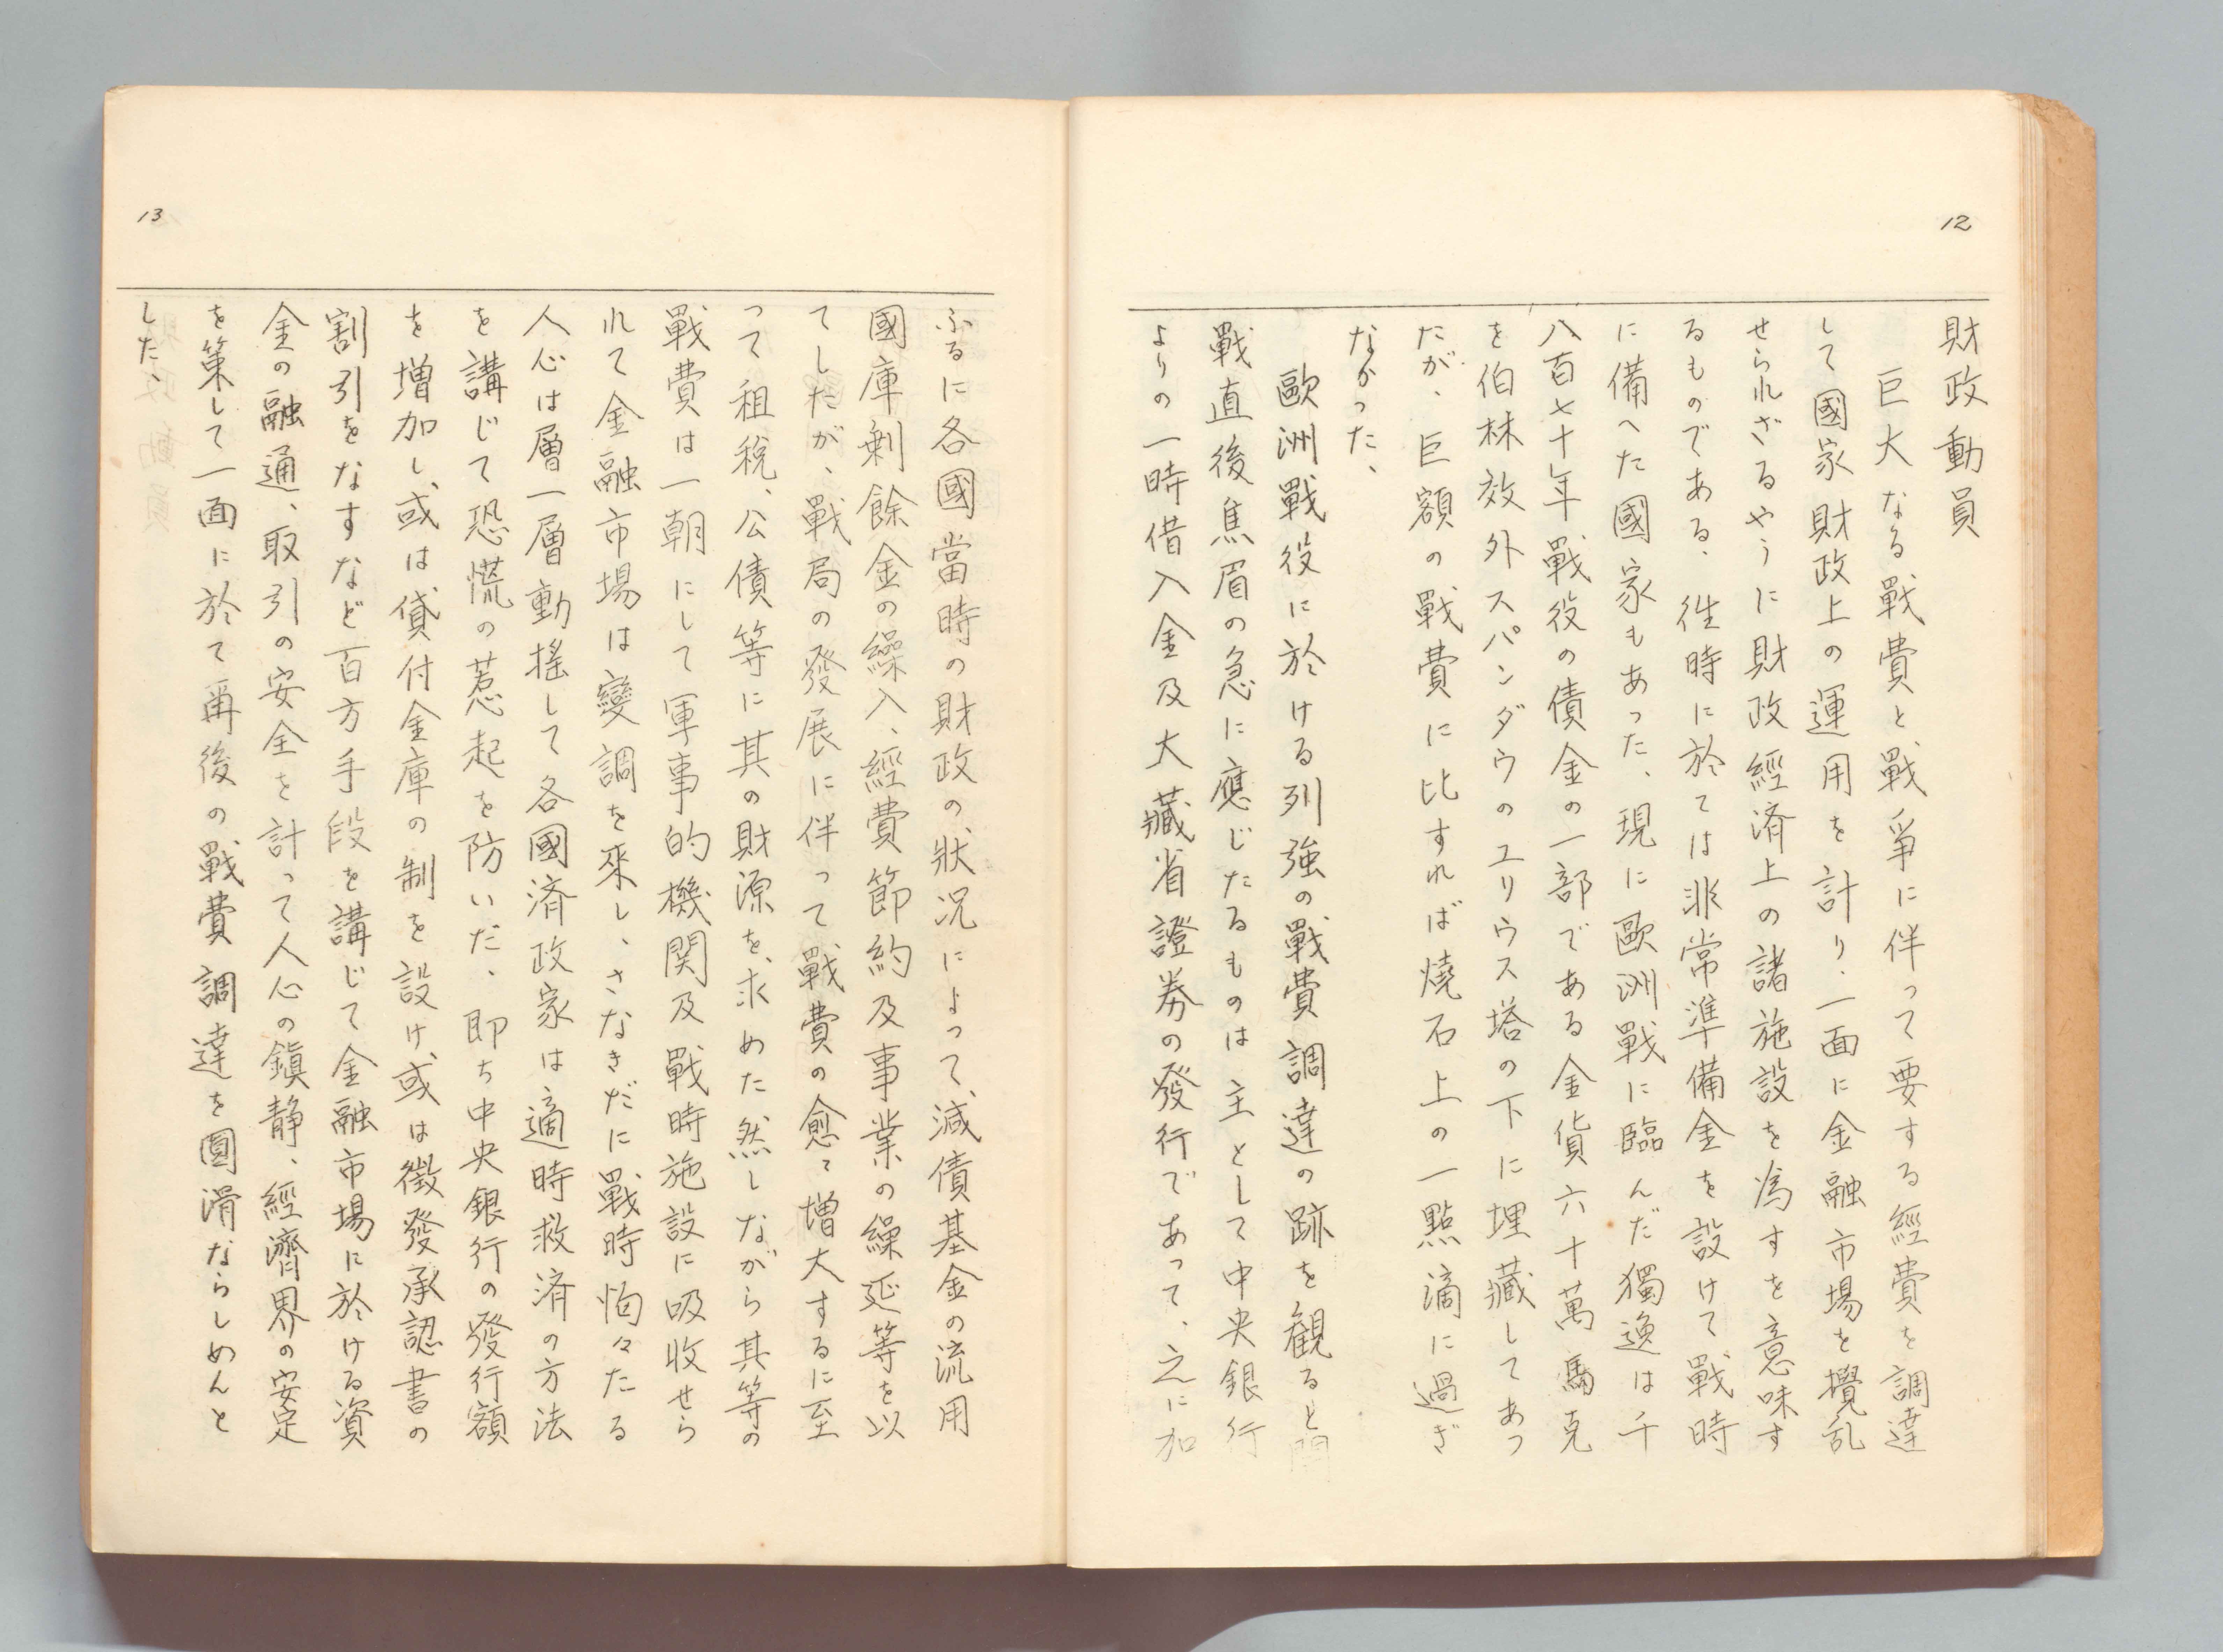 12
財政動員
巨大なる戰費と、戰爭に伴って要する經費を調達
して國家財政上の運用を計り、一面に金融市場を攪乱
せられざるやうに財政經済上の諸施設を為すを意味す
るものである、徃時に於ては非常準備金を設けて戰時
に備へた國家もあった、現に歐洲戰に臨んだ獨逸は千
八百七十年戰役の債金の一部である金貨六十萬馬克
を伯林效外スパンダウのユリウス塔の下に埋藏してあっ
たが、巨額の戰費に比すれば燒石上の一點滴に過ぎ
なかった、
歐洲戰役に於ける列強の戰費調達の跡を観ると開
戰直後焦眉の急に應じたるものは主として中央銀行
よりの一時借入金及大藏省證券の發行であって、之に加
13
ふるに各國當時の財政の狀況によって、減債基金の流用
國庫剩餘金の繰入、經費節約及事業の繰延等を以
てしたが、戰局の發展に伴って戰費の愈々増大するに至
って租税、公債等に其の財源を、求めた然しながら其等の
戰費は一朝にして軍事的機関及戰時施設に吸收せら
れて金融市場は變調を來し、さなきだに戰時恟々たる
人心は層一層動搖して各國済政家は適時救済の方法
を講じて恐慌の惹起を防いだ、即ち中央銀行の發行額
を増加し、或は貸付金庫の制を設け、或は徴發承認書の
割引をなすなど百方手段を講じて金融市場に於ける資
金の融通、取引の安全を計って人心の鎭静、經濟界の安定
を策して一面に於て爾後の戰費調達を圓滑ならしめんと
した、